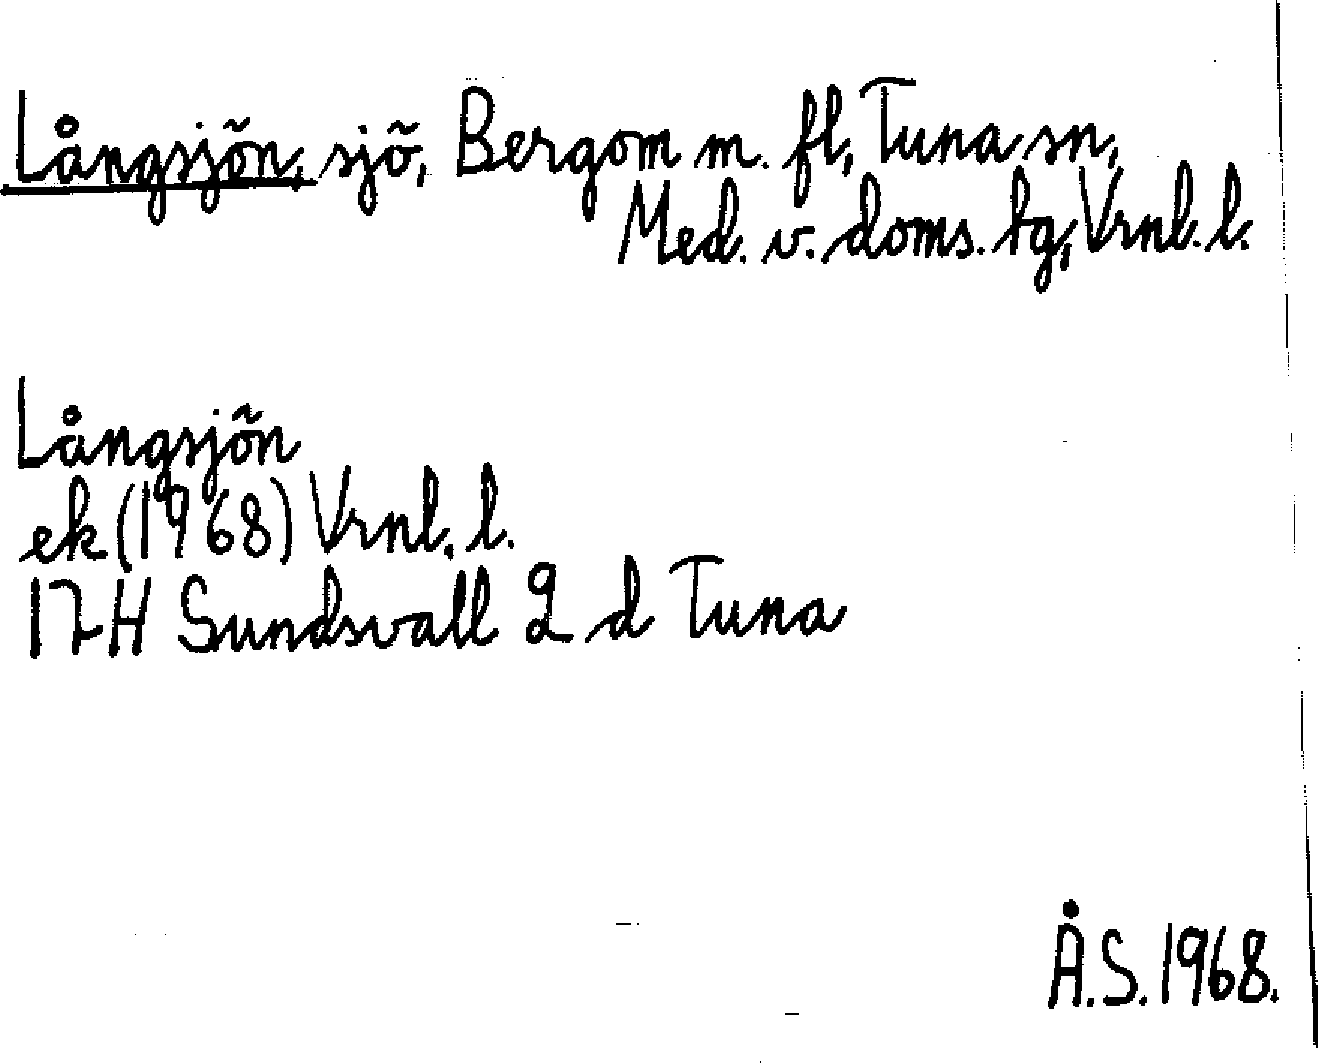 Långsjön, sjö, Bergom m. fl, Tuna sn,
Med. v. doms. tg, Vrnl. l.
Långsjön
ek (1968) Vrnl. l.
17H Sundsvall 2 d Tuna
Å.S. 1968.